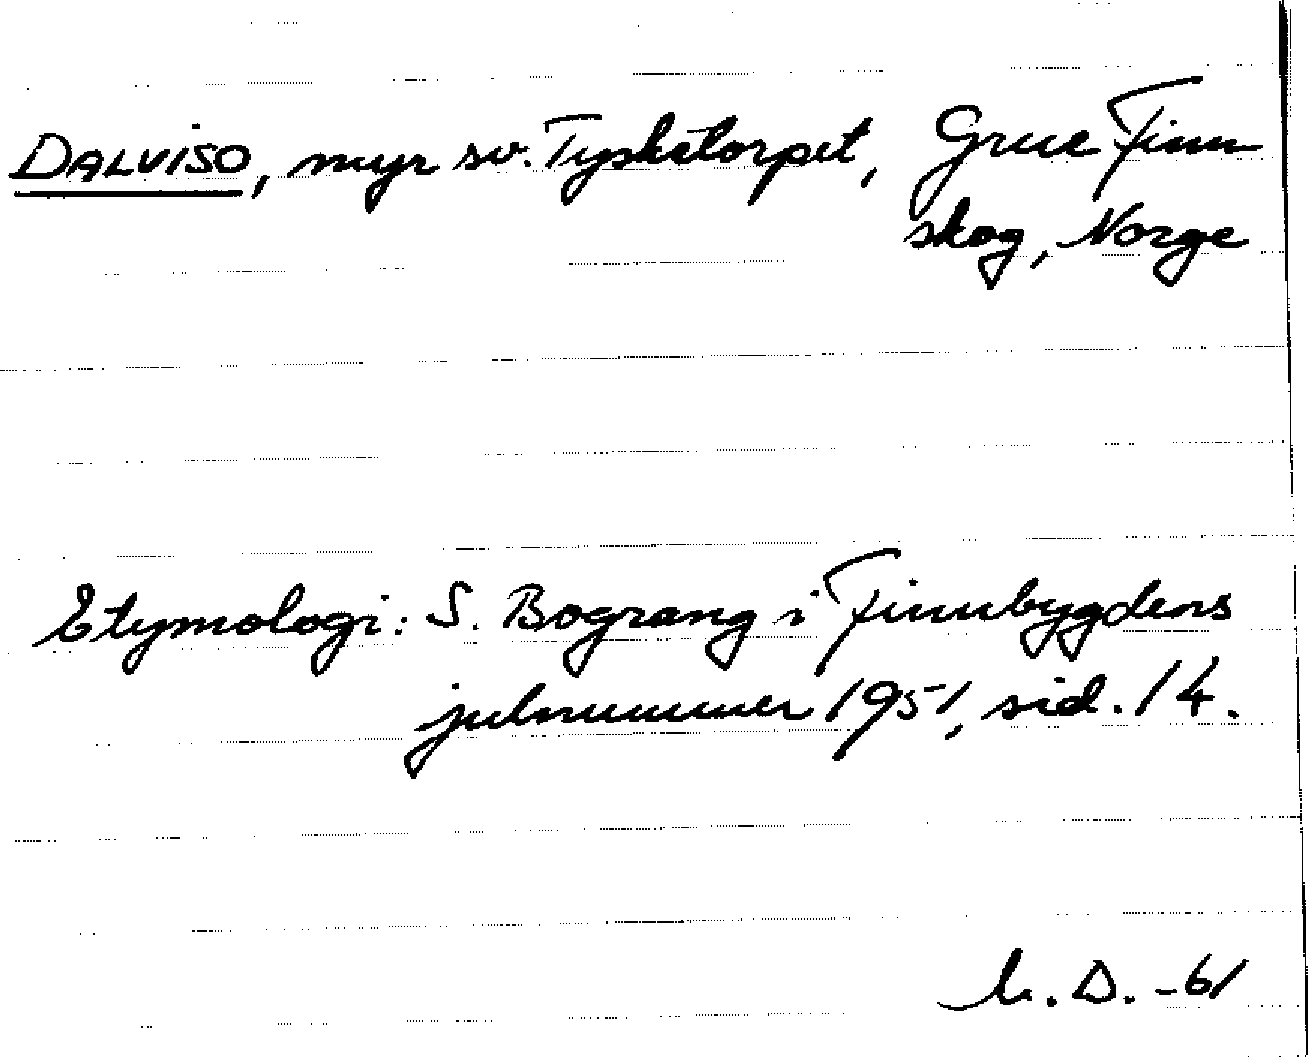 DALVISO, myr sv. Tysketorpet, Grue Finn
skog, Norge
Etymologi: S. Bograng i Finnbygdens
julnummer 1951, sid. 14.
D. -61